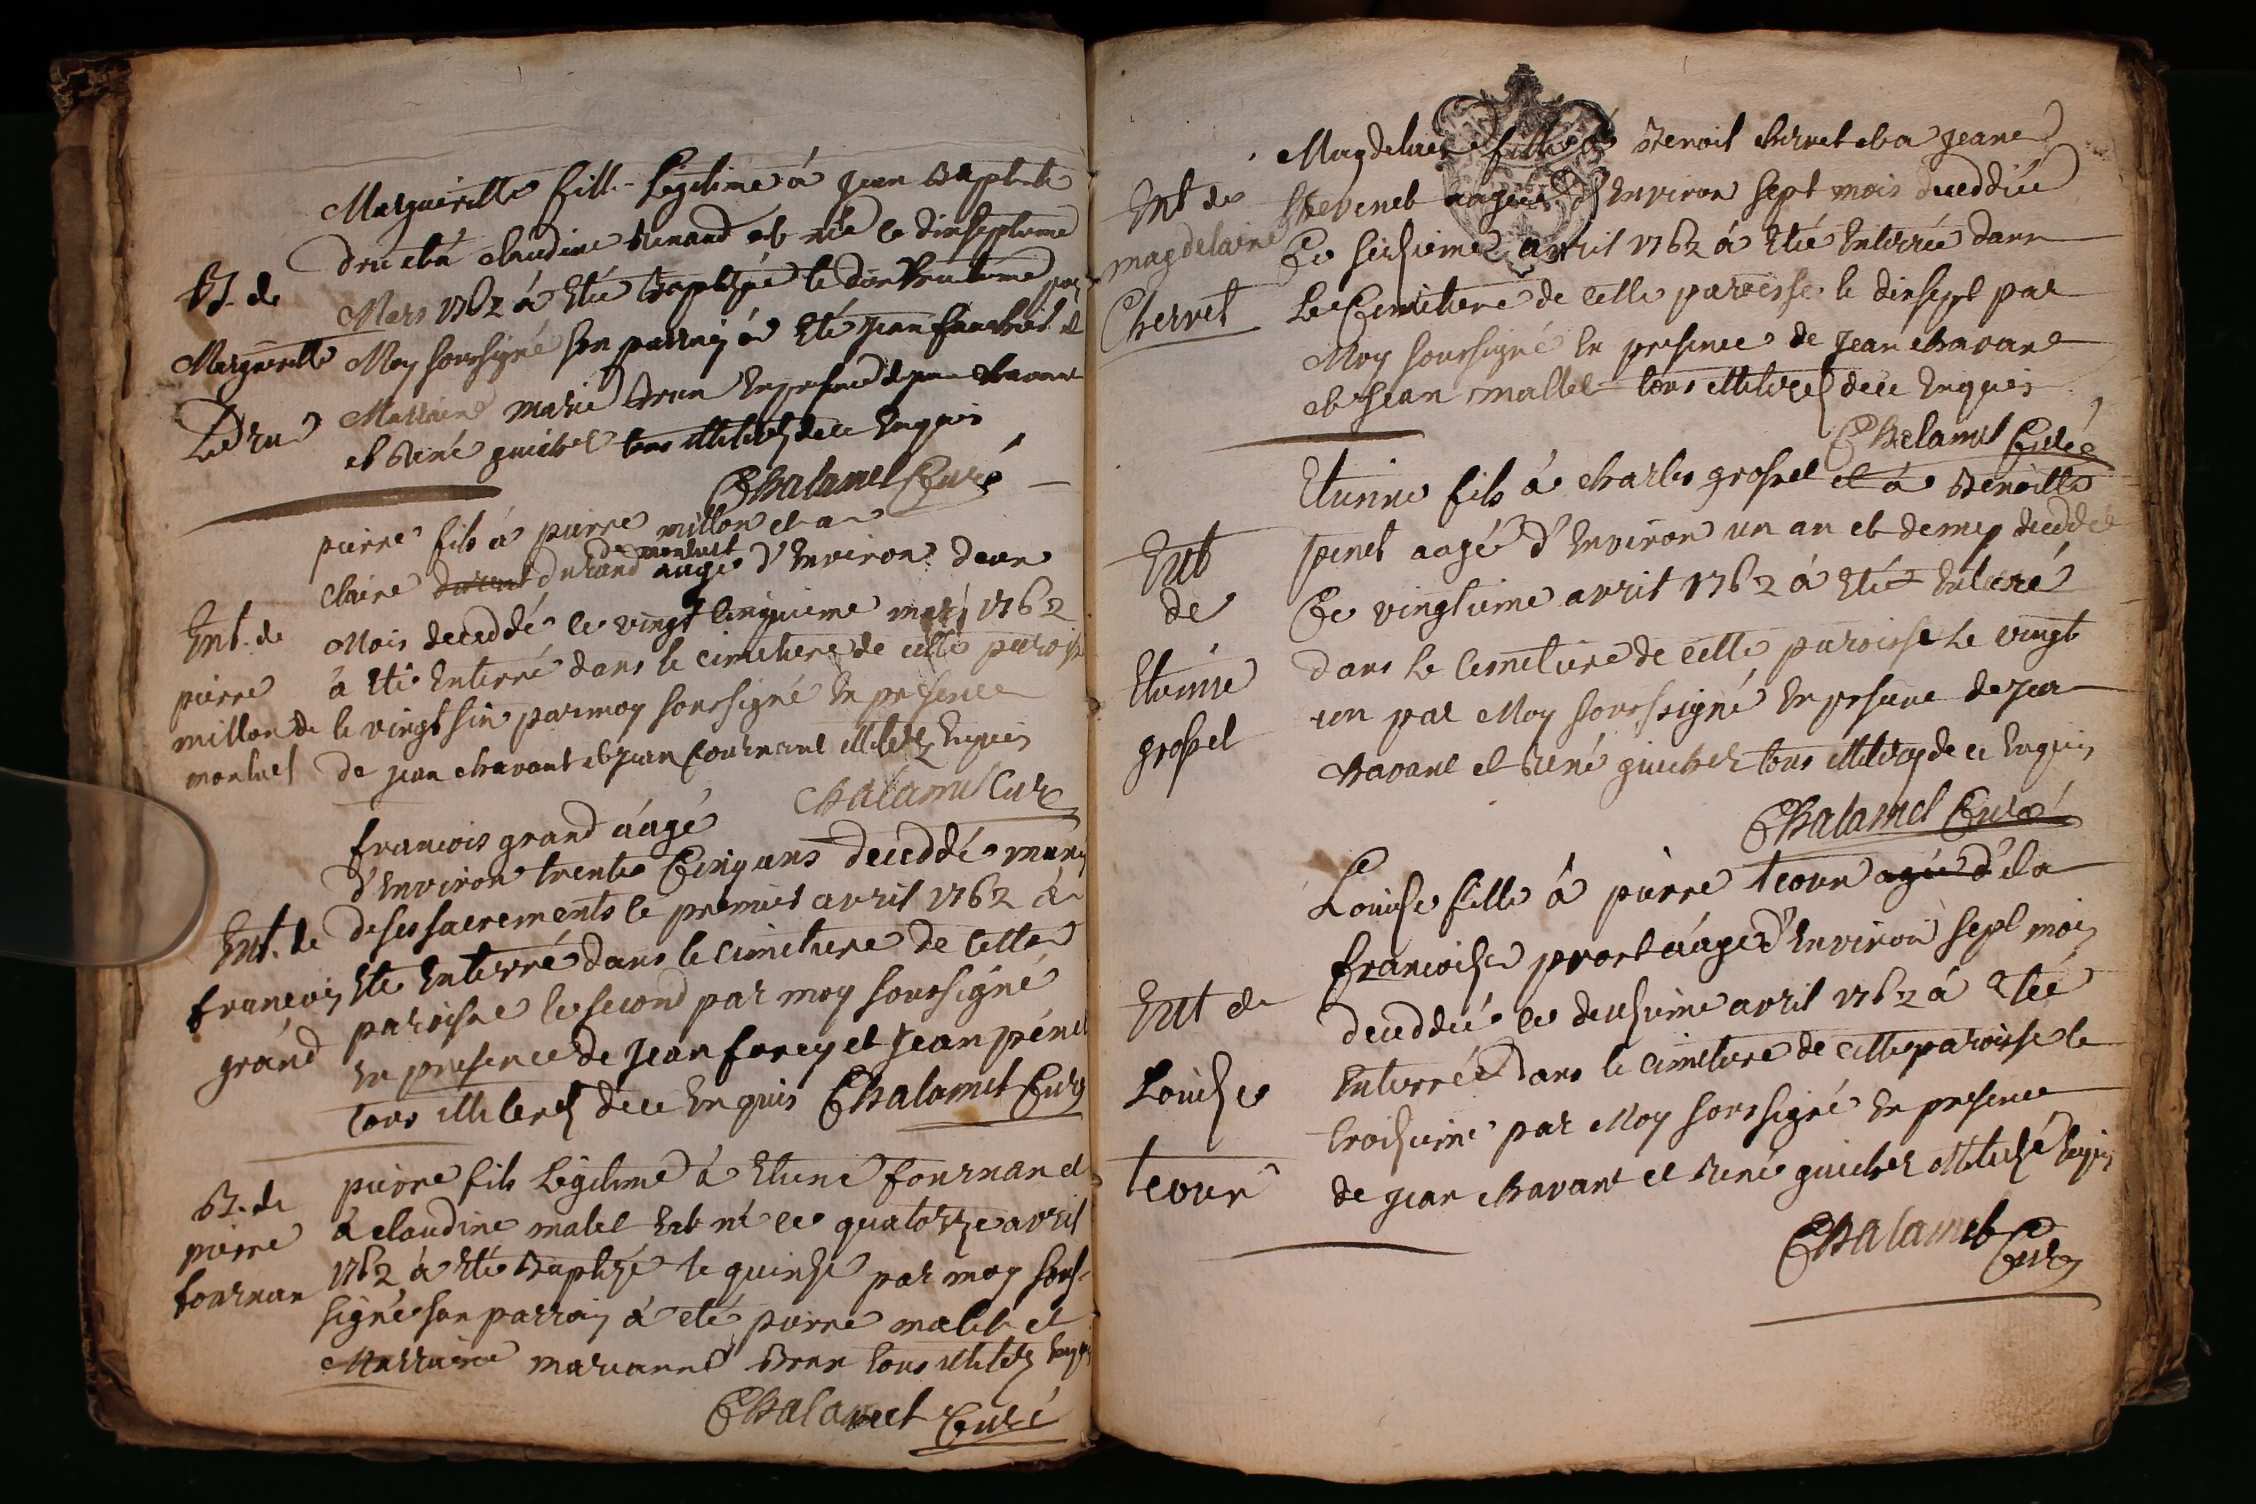 B. de
Marguerille
Ledru
Marguerille fille Legitime á Jean Baptiste
dru et á claudine Renand est née le dixseptieme
Mars 1762 á Eté Baptisée le dixhuitieme par
Moy soussigné son parrain á Eté Jean
Marraine marie Brun En presence de jean chavant
et René guicher tous illiterez de ce Enquis
Chalamel Curé
Ent. de
pierre
millon de
montuel
pierre fils á pierre millon et a
de montuel
claire durand aagé d'Environ deux
Mois deceddé le vingt cinquieme mars 1762
á Eté Enterré dans le cimetiere de cette paroisse
le vingt six par moy soussigné En presence
de jean chavant et jean tournant illiterez Enquis
Chalamel Curé
Ent. de
francois
grand
francois grand áagé
d'Environ trente Cinq ans deceddé muny
de ses sacrements le premier avril 1762 á
Eté Enterré dans le cimetiere de cette
paroisse le second par moy soussigné
En presence de Jean forey et Jean pénet
tous illiterez de ce Enquis Chalamel Curé
B. de
pierre
fournan
pierre fils Légitime á Etiene fournan et
á claudine malet Est né le quatorze avril
1762 á Eté Baptizé le quinze par moy sous-
signé son parrain á eté pierre malet et
Marraine marianne Brun tous illiterez Enquis
Chalamel Curé
Ent de
magdelaine
Chervet
Magdelaine fille á Benoit chervet et a Jeane
thevenet aagée d'Environ sept mois deceddée
Le seizieme avril 1762 á Eté Enterrée dans
Le Cemitiere de cette paroisse le dixsept par
Moy soussigné En presence de Jean chavant
et Jean mallet tous illiterez de ce Enquis
Chalamel Curé
Ent
de
Etienne
grosset
Etienne fils á charles grosset et á Benoitte
pinet aagé d'Environ un an et demy deceddé
Le vingtieme avril 1762 á Eté Enterré
dans le Cemetiere de cette paroisse Le vingt
un par Moy soussigné En presence de jean
chavant et René guicher tous illiterez de ce Enquis
Chalamel Curé
Ent de
Louise
teour
Louise fille á pierre teour agée d' et a
francoise prost áagée d'Environ sept mois
deceddée le deusieme avril 1762 á Etée
Enterrée dans le cimetiere de cette paroisse le
troisieme par Moy soussigné En presence
de jean chavant et René guicher illiterez Enquis
Chalamel
Curé